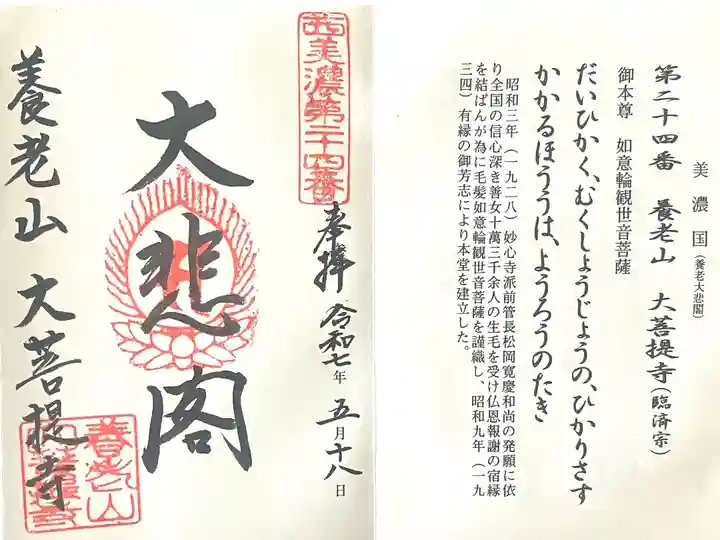 美濃国(養老大悲閣)
第二十四番 養老山 大菩提寺(臨済宗)
御本尊 如意輪観世音菩薩
だいひかく、むくしょうじょうの、ひかりさす
かかるほううは、ようろうのたき
昭和三年(一九二八)妙心寺派前管長松岡寛慶和尚の発願に依
り全国の信心深き善女十萬三千余人の生毛を受け仏恩報謝の宿縁
を結ばんが為に毛髪如意輪観世音菩薩を謹織し、昭和九年(一九
三四)有縁の御芳志により本堂を建立した。
西美濃第二十四番
奉拝 令和七年五月十八日
大悲閣
養老山 大菩提寺
養老山